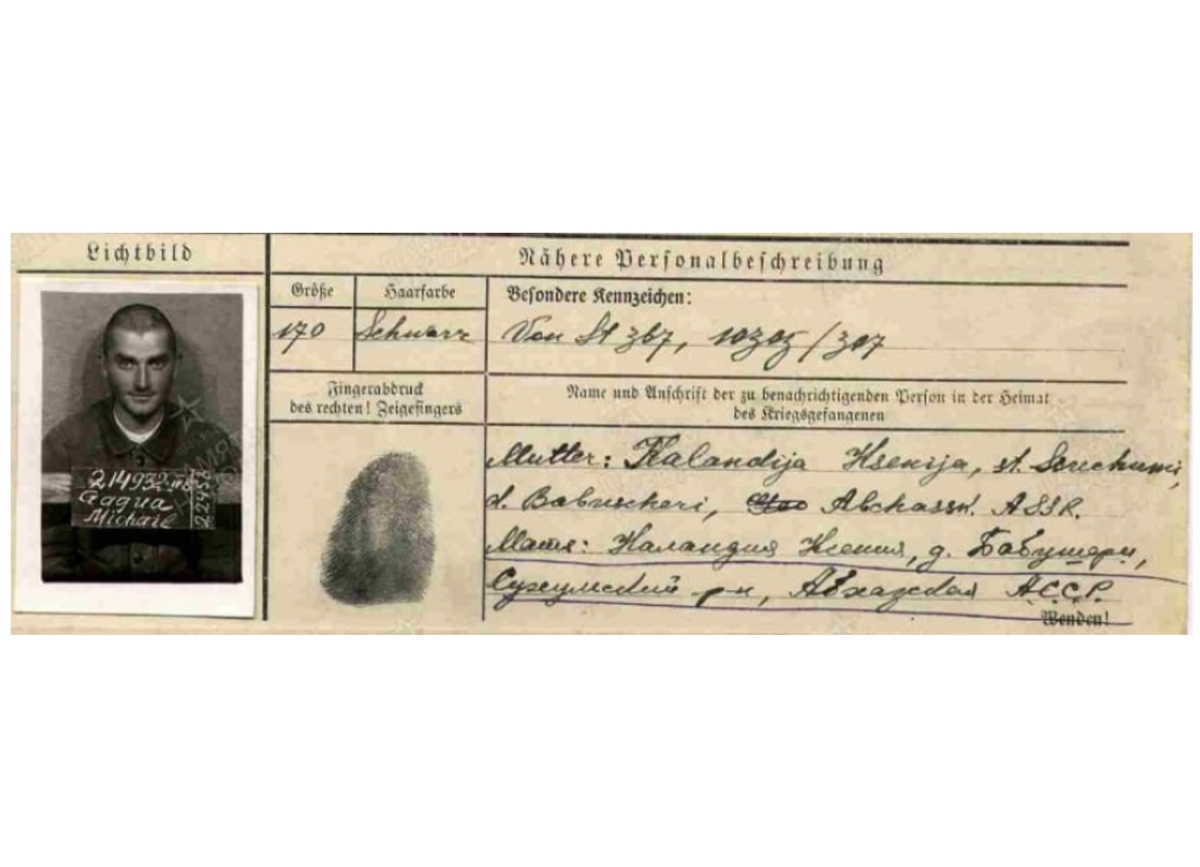 Lichtbild
Nähere Personalbeschreibung
Größe
Haarfarbe
Besondere Kennzeichen:
170
Schwarz
Von St 367, 10305/307
Fingerabdruck
des rechten! Zeigefingers
Name und Anschrift der zu benachrichtigenden Person in der Heimat
des Kriegsgefangenen
Mutter: Kalandija Ksenija, st. Suchumi,
d. Babuscheri, Abchass. ASSR.
Мать: Каландия Ксения, д. Бабушери,
Сухумский р-н, Абхазская АССР.
Wenden!
214932
Gagua
Michail